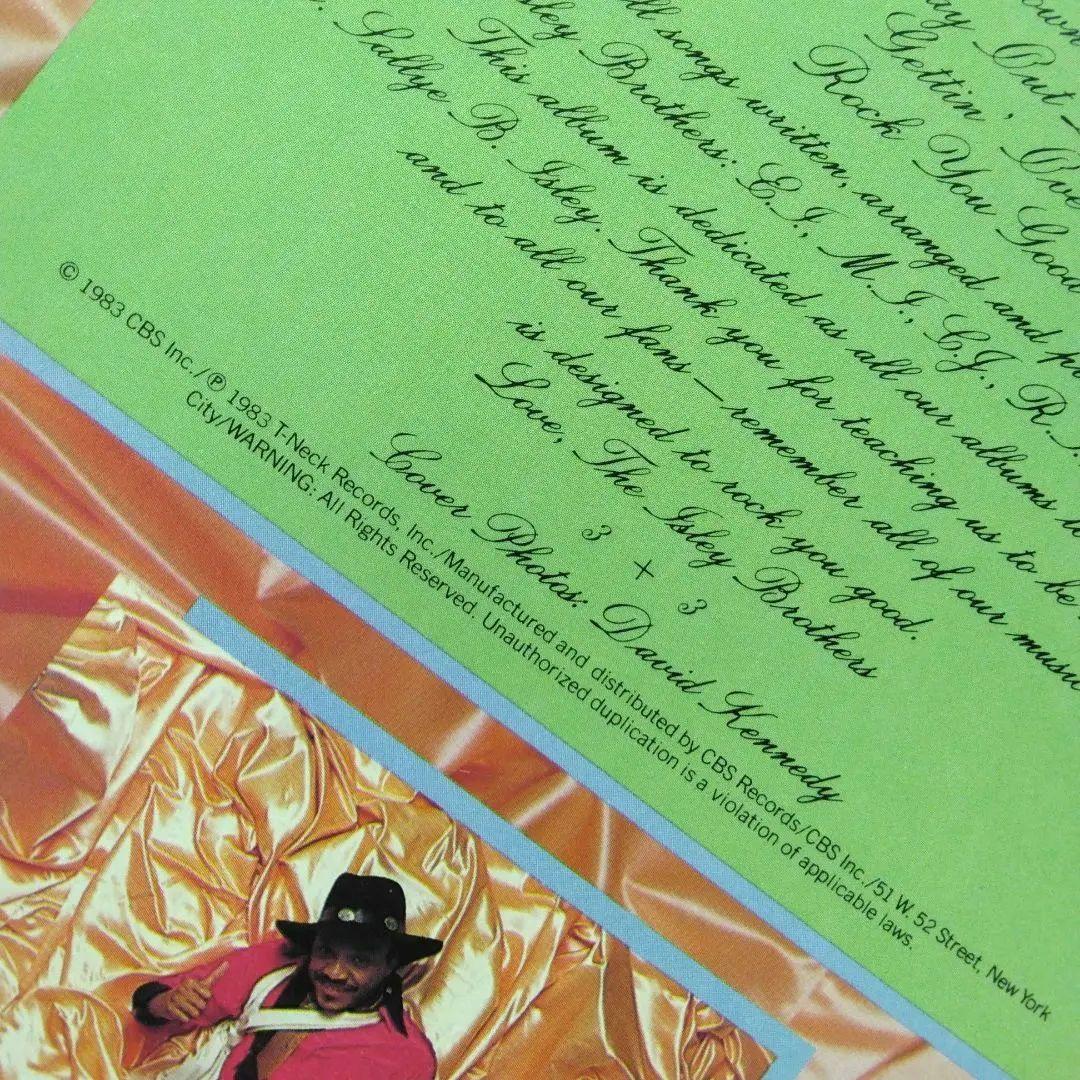 Out
Gettin',
Rock You Good
songs written, arranged and
Brothers: E.I., M.I., C.J., R.
This album is dedicated as all our albums
Sallye B. Isley. Thank you for teaching us to be
and to all our fans — remember all of our
is designed to rock you good.
Love, The Isley Brothers
3 + 3
Cover Photos: David Kennedy
© 1983 CBS Inc./℗ 1983 T-Neck Records, Inc./Manufactured and distributed by CBS Records/CBS Inc./51 W. 52 Street, New York
City/WARNING: All Rights Reserved. Unauthorized duplication is a violation of applicable laws.